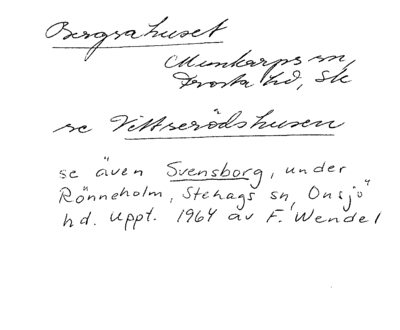 Bergsahuset
Munkarps sn,
Frosta hd, Sk
se Vittserödshusen
se även Svensborg, under
Rönneholm, Stehags sn, Onsjö
hd. Uppt. 1964 av F. Wendel